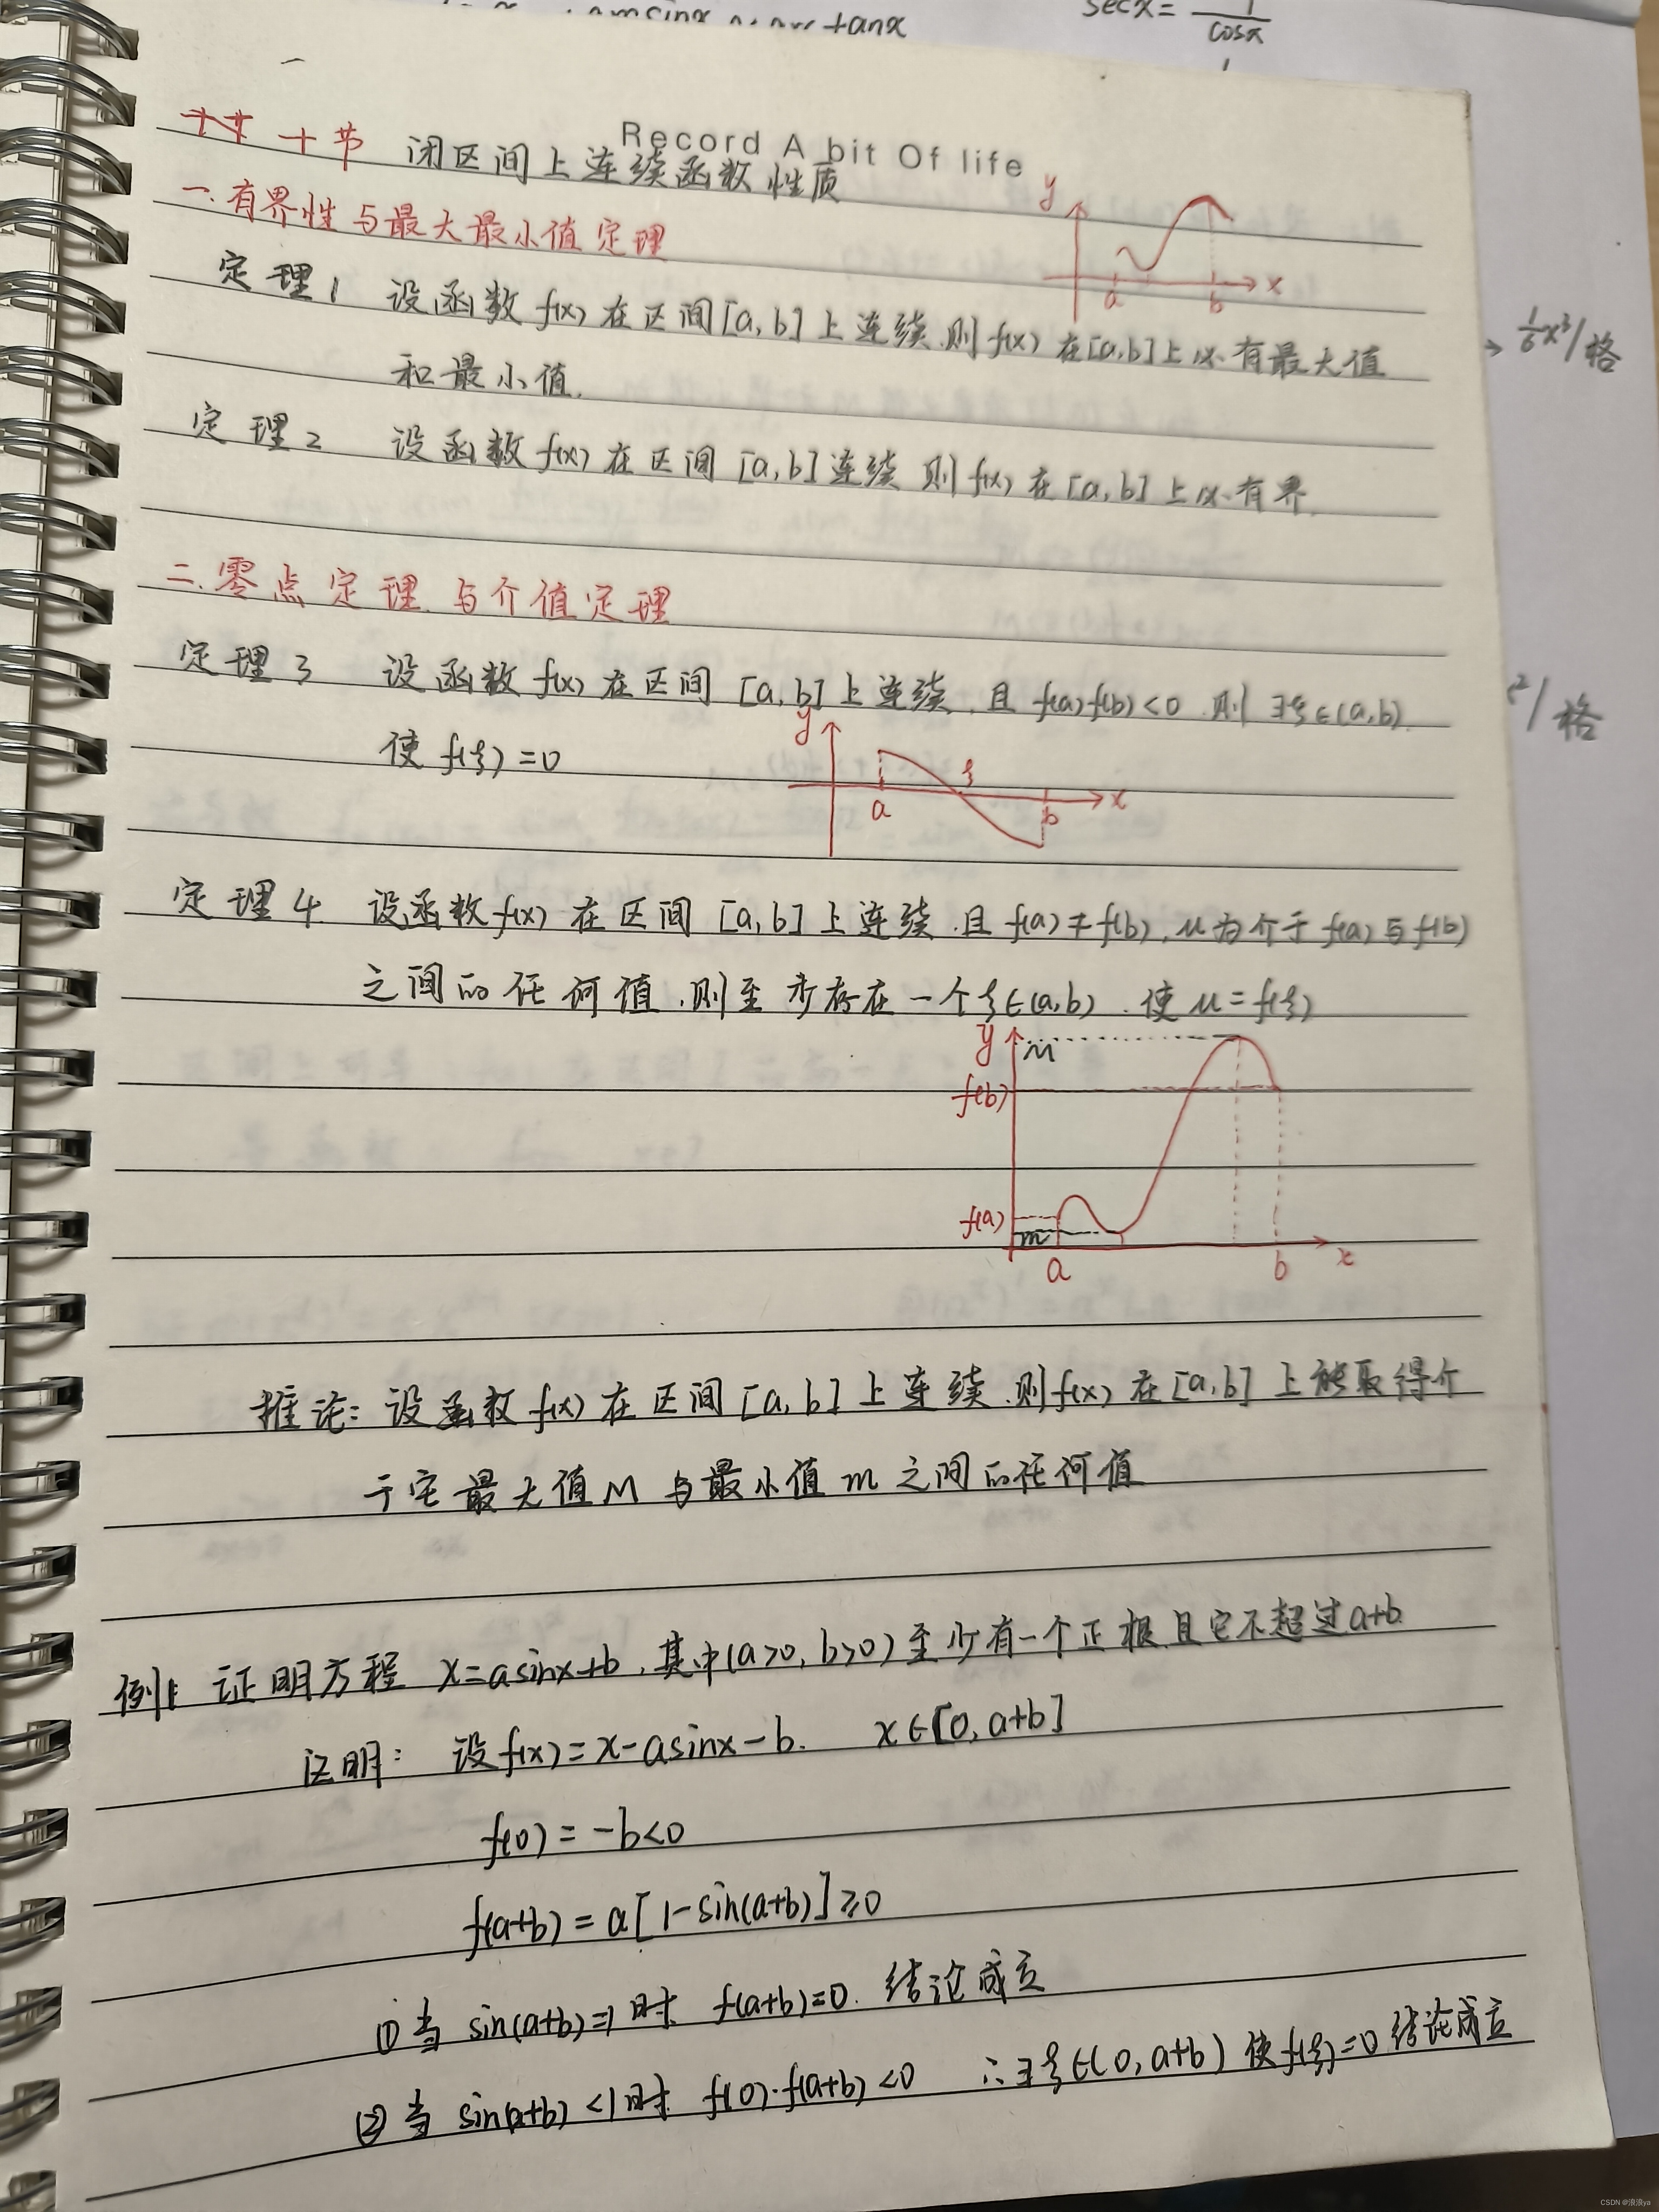 sinx arctanx
secx = 1/cosx
Record A bit Of life
十节 闭区间上连续函数性质
一.有界性与最大最小值定理
y
a b x
定理1 设函数f(x)在区间[a,b]上连续.则f(x)在[a,b]上必有最大值
和最小值.
→ 1/6x³/格
定理2 设函数f(x)在区间[a,b]连续 则f(x)在[a,b]上必有界.
二.零点定理与介值定理
定理3 设函数f(x)在区间[a,b]上连续.且f(a)f(b)<0.则∃ξ∈(a,b).
²/格
使f(ξ)=0
y
ξ
a b x
定理4 设函数f(x)在区间[a,b]上连续.且f(a)≠f(b),μ为介于f(a)与f(b)
之间的任何值.则至少存在一个ξ∈(a,b).使μ=f(ξ)
y M
f(b)
f(a)
m
a b x
推论:设函数f(x)在区间[a,b]上连续.则f(x)在[a,b]上能取得介
于它最大值M与最小值m之间的任何值
例1 证明方程 x=asinx+b,其中(a>0,b>0)至少有一个正根且它不超过a+b.
证明: 设f(x)=x-asinx-b. x∈[0,a+b]
f(0)=-b<0
f(a+b)=a[1-sin(a+b)]≥0
①当sin(a+b)=1时 f(a+b)=0.结论成立
②当sin(a+b)<1时 f(0)·f(a+b)<0 ∴∃ξ∈(0,a+b)使f(ξ)=0结论成立
CSDN @浪浪ya